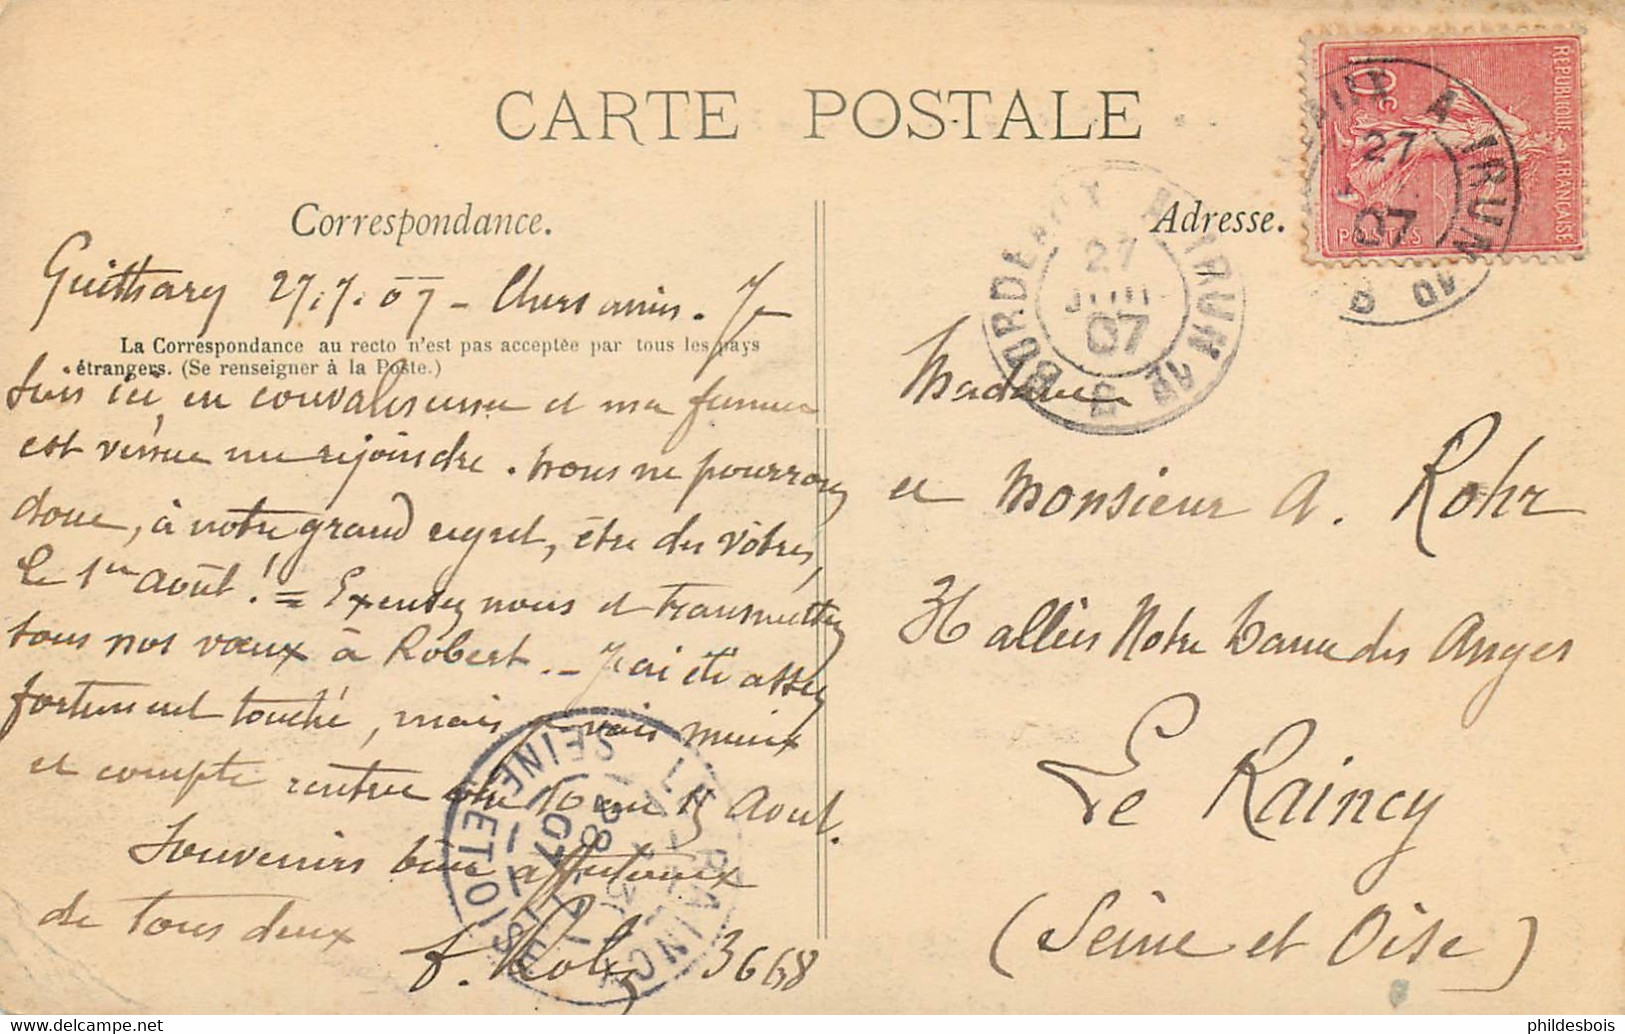 CARTE POSTALE
Correspondance.
Guéthary 27.7.07 - Chers amis. Je
La Correspondance au recto n'est pas acceptée par tous les pays
étrangers. (Se renseigner à la Poste.)
suis ici en convalescence et ma femme
est venue me rejoindre. Nous ne pourrons
donc, à notre grand regret, être des vôtres,
le 1er août! = Excusez nous et transmettez
tous nos vœux à Robert. - J'ai été assez
fortement touché, mais je vais mieux
et compte rentrer 10 ou 15 Août.
Souvenirs bien affectueux
de tous deux
3668
Adresse.
Madame
et Monsieur A. Rohr
36 allées Notre Dame des Anges
Le Raincy
(Seine et Oise)
REPUBLIQUE FRANCAISE
10c
POSTES
A IRUN
27
07
BORDEAUX A IRUN
27
JUIL
07
LE RAINCY
SEINE-ET-OISE
28
07
phildesbois